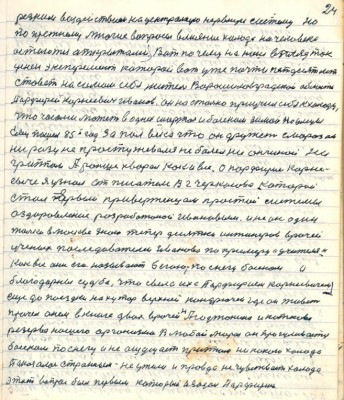 24
резким воздействием на центральную нервную систему. Но
по прежнему многие вопросы влияния холода на человека
остаются открытыми. Вот почему на наш взгляд так
ценен эксперимент который вот уже почти пятдесят лет
ставит на самом себе житель Ворошиловградской области
Парфирий Корнеевич Иванов. он на столько приучил себя к холоду,
что часами может в одних шортах и босиком зимой
Ему пошел 85й год. За пол века что он дружит с морозом
ни разу не простуживался не болел ни ангиной ни
гриппом А раньше хворал как и все. О Парфирие Корне-
евиче я узнал от писателя В Г Черкасова который
стал первым приверженцем простой системы
оздоровления разработанной Ивановым. и не он один
только в Москве знаю теперь десятки инженеров врачей
ученых последователи Иванова по примеру "учителя"
как все они его называют бегают по снегу босиком и
благодарны судьбе, что свела их с Парфирием Корнеевичем
еще до поездки на хутор Верхний Кондрючий где он живет
прочел он в книге двох врачей Агаджаняна и Каткова
резервы нашего организма В любой мороз он прогуливается
босиком по снегу и не ощущает при этом никакого холода
Показалось странным - неужели и правда не чувствует холода
Этот вопрос был первым который я задал Парфирию